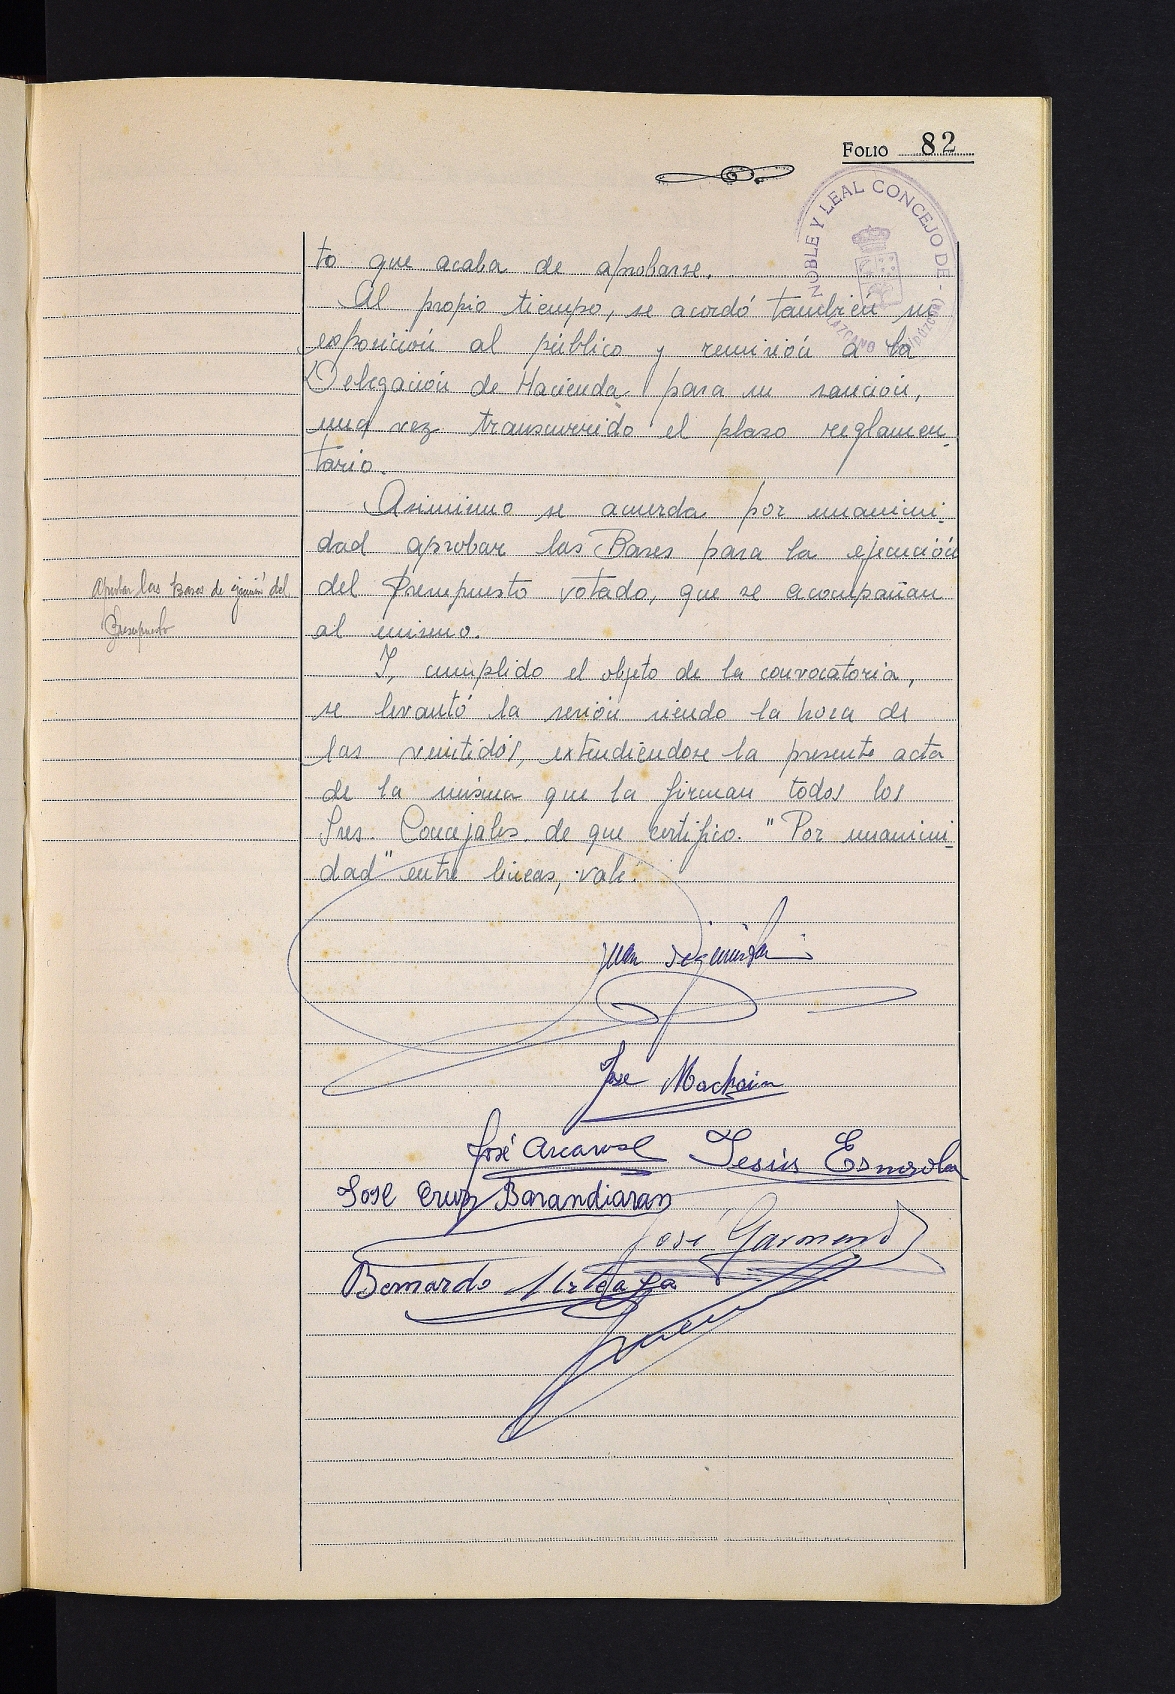 FOLIO 82
NOBLE Y LEAL CONCEJO DE - LAZCANO (GUIPÚZCOA)
to que acaba de aprobarse.
Al propio tiempo, se acordó también su
exposición al público y remisión a la
Delegación de Hacienda para su sanción,
una vez transcurrido el plazo reglamen-
tario.
Asimismo se acuerda por unanimi-
dad aprobar las Bases para la ejecución
del Presupuesto votado, que se acompañan
al mismo.
Aprobar las Bases de ejecución del
Presupuesto
Y, cumplido el objeto de la convocatoria,
se levantó la sesión siendo la hora de
las veintidós, extendiéndose la presente acta
de la misma que la firman todos los
Sres. Concejales de que certifico. "Por unanimi-
dad" entre líneas, vale.
Juan
Jose Machain
José Jesús
José Cruz Barandiaran
José Garmendi
Bernardo Urteaga